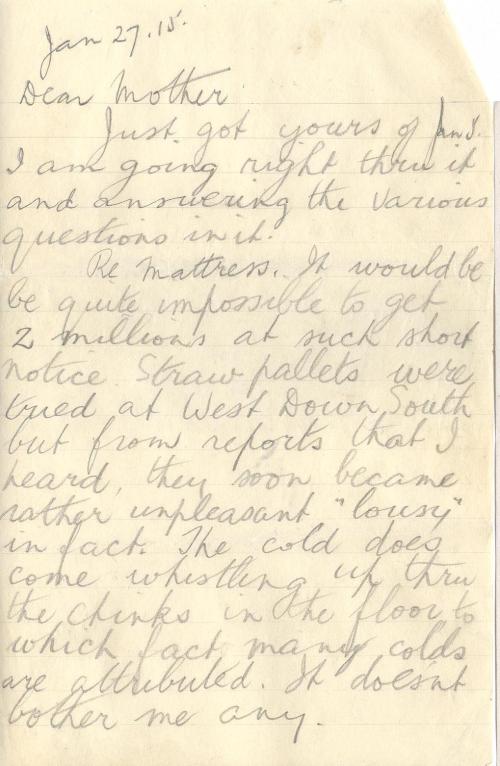 Jan 27. 15.
Dear Mother
Just got yours of Jan 8.
I am going right thru it
and answering the various
questions in it.
Re Mattress. It would be
be quite impossible to get
2 millions at such short
notice. Straw pallets were
tried at West Down South
but from reports that I
heard, they soon became
rather unpleasant "lousy"
in fact. The cold does
come whistling up thru
the chinks in the floor to
which fact many colds
are attributed. It doesnt
bother me any.